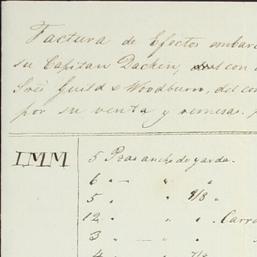 Factura de Efectos embar
su Capitan Dacken, con
Sres Guild & Woodburn, del co
por su venta y remesa.
IMM 5 Pzas ancho de yarda.
6 " — " "
5 " " 9/8 "
12 " " " " Carr
3 " — " "
4 " 7/8